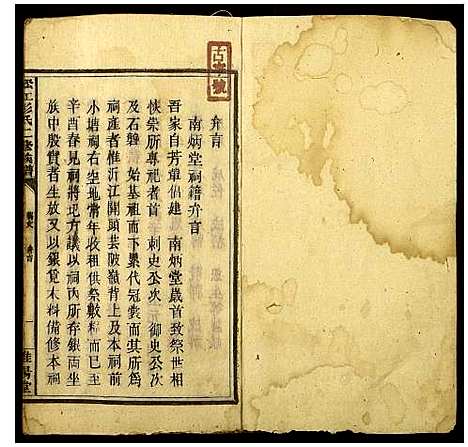 弁言
南炳堂祠籍弁言
吾家自芳單倡建　南炳堂歲首致祭世相
恢崇所專祀者首　刺史公次　御史公次
及石磐　　始基祖而下累代冠裳而其所為
祠產者惟沂江開頭芸陂嶺背上及本祠前
小塘祠右空地常年收租供祭敷糈而已至
辛酉春見祠將圮方議以祠內所存銀両坐
族中殷實者生放又以銀覓木料備修本祠
彭氏二修族譜
弁言
一